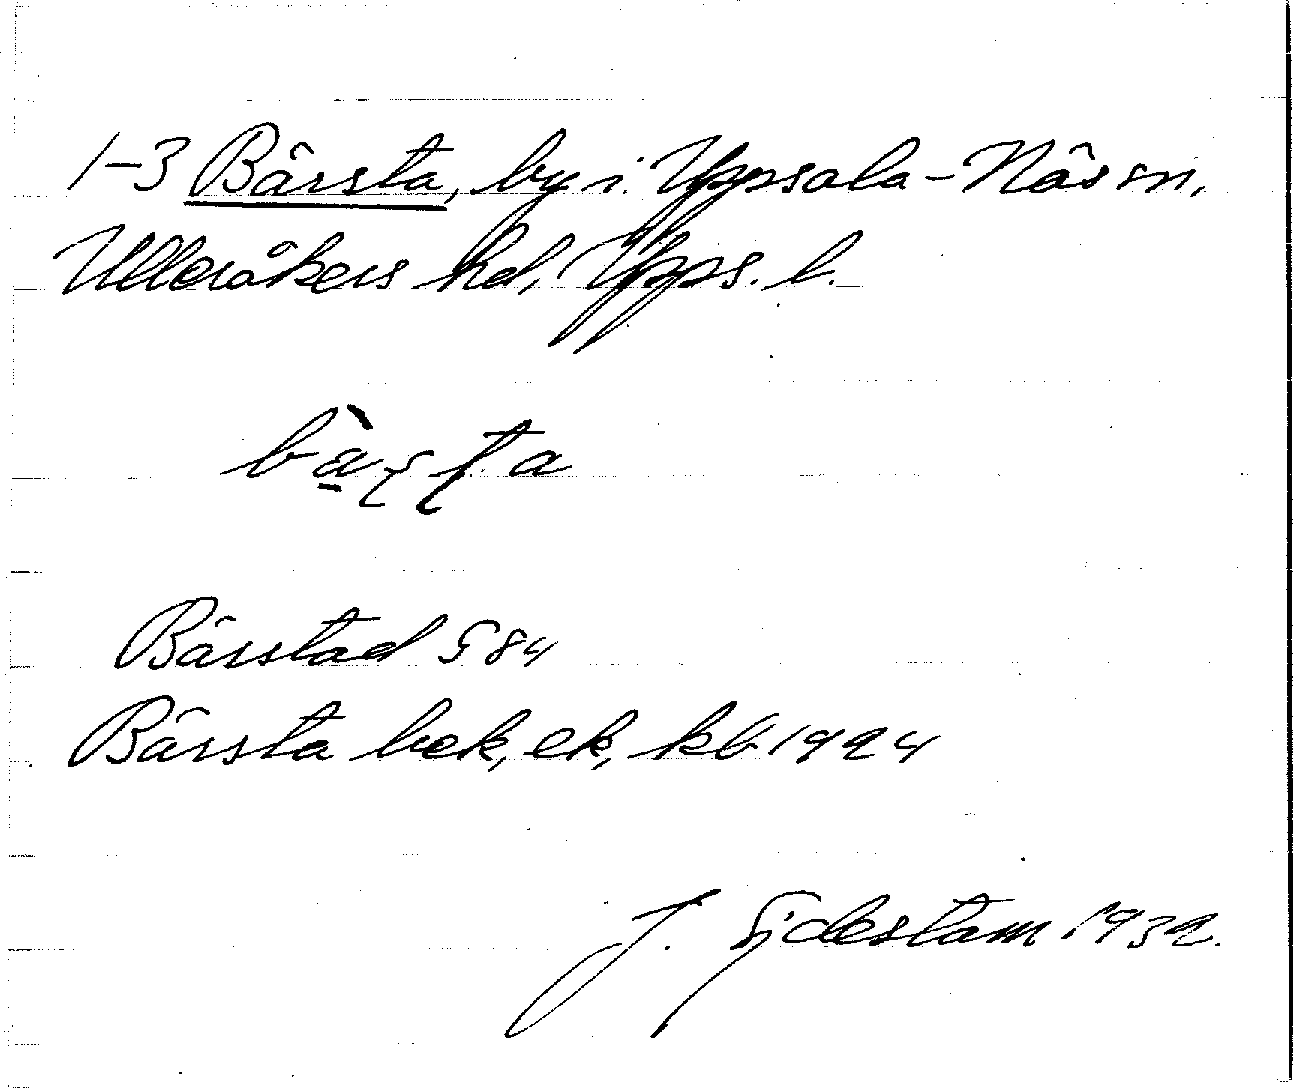 1-3 Bärsta, by i Uppsala-Näs sn,
Ulleråkers hd, Upps. l.
Bärstad G 84
Bärsta bek, ek, kb 1924
J. Gidestam 1932.